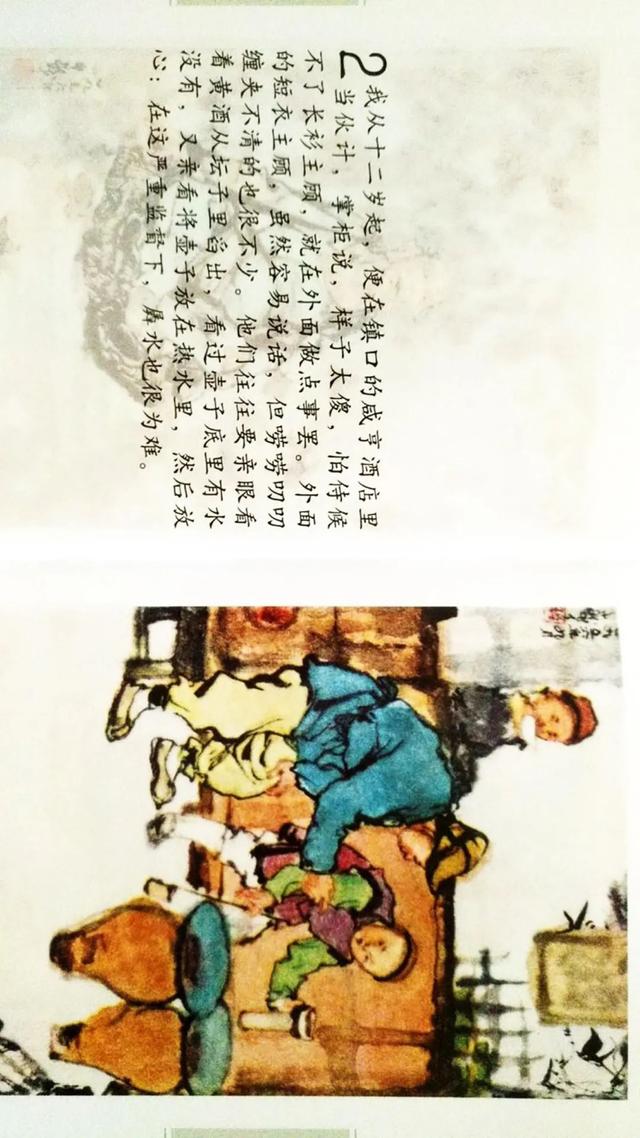 2 我从十二岁起，便在镇口的咸亨酒店里
当伙计，掌柜说，样子太傻，怕侍候
不了长衫主顾，就在外面做点事罢。外面
的短衣主顾，虽然容易说话，但唠唠叨叨
缠夹不清的也很不少。他们往往要亲眼看
着黄酒从坛子里舀出，看过壶子底里有水
没有，又亲看将壶子放在热水里，然后放
心：在这严重监督下，羼水也很为难。